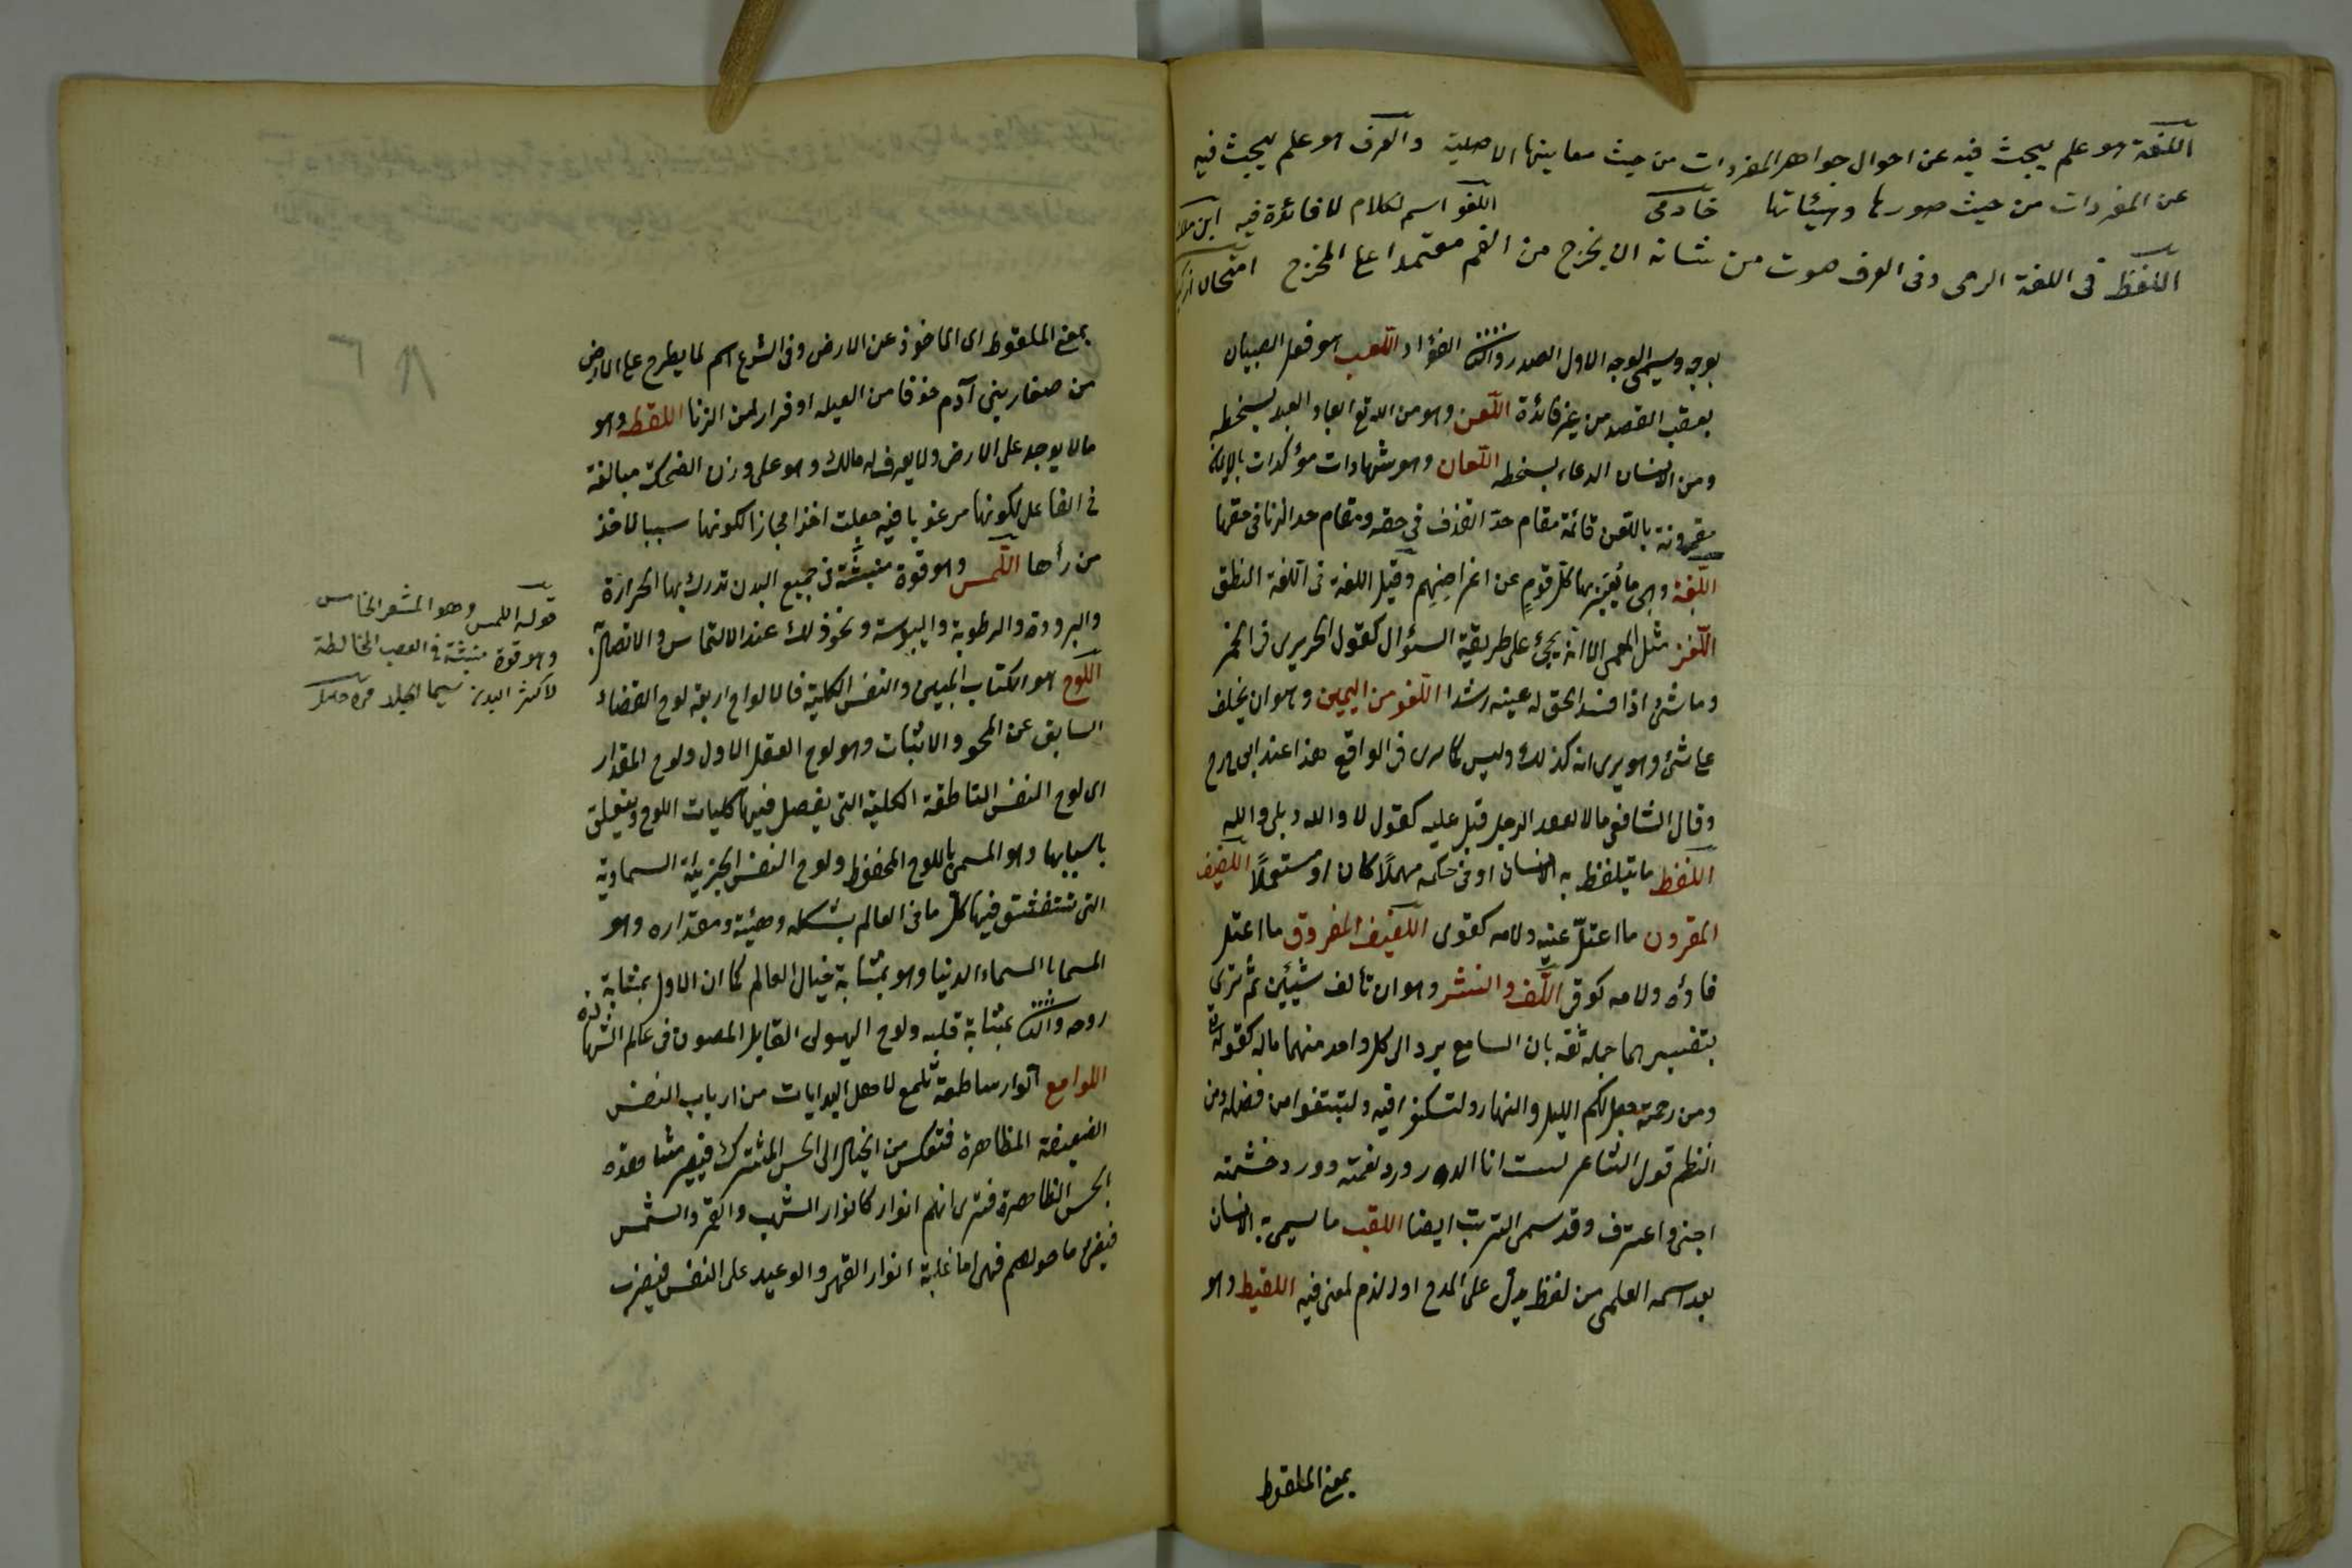 اللغة هو علم يبحث فيه عن احوال جواهر المفردات من حيث معاينها الاصلية والصرف هو علم يبحث فيه
عن المفردات من حيث صورها وهيئاتها خادمى اللغو اسم لكلام لا فائدة فيه ابن ملك
اللفظ فى اللغة الرمى وفى العرف صوت من شانه ان يخرج من الفم معتمدا على المخرج امتحان
بوجه ويسمى الوجه الاول الصدر والثانى الفؤاد اللعب هو فعل الصبيان
بعقب القصد من غير فائدة اللعن وهو من الله تع ابعاد العبد بسخطه
ومن الانسان الدعاء بسخطه اللعان وهو شهادات مؤكدات بالايمان
مقرونة باللعن قائمة مقام حد القذف فى حقه ومقام حد الزنا فى حقها
اللغة وهى ما يعبر بها كل قوم عن اغراضهم وقيل اللغة فى اللغة النطق
اللغز مثل المعمى الا انه يجئ على طريقة السؤال كقول الحريرى فى الخمر
وما شئ اذا فسد الحق له عينه رشدا اللغو من اليمين وهو ان يحلف
على شئ وهو يرى انه كذلك وليس كما يرى فى الواقع هذا عند ابى ح رح
وقال الشافعى مالا يعقد الرجل قبل عليه كقول لا والله وبلى والله
اللفظ ما يتلفظ به الانسان او فى حكمه مهملًا كان او مستعملًا اللفيف
المقرون ما اعتلّ عينه ولامه كقوى اللفيف المفروق ما اعتل
فاؤه ولامه كوقى اللف والنشر وهو ان تألف شيئين ثم ترى
بتفسيرهما جملة ثقة بان السامع يرد الى كل واحد منهما ماله كقوله تع
ومن رحمته جعل لكم الليل والنهار ولتسكنوا فيه ولتبتغوا من فضله ومن
النظم قول الشاعر لست انا الدر ورد نغمته وورد خشمته
اجنى واعترف وقد سمى الترتب ايضا اللقب ما يسمى به الانسان
بعد اسمه العلمى من لفظ يدل على المدح او الذم لمعنى فيه اللقيط وهو
بمعنى الملقوط
بمعنى الملقوط اى الماخوذ عن الارض وفى الشرع اسم لما يطرح على الارض
من صغار بنى آدم خوفا من العيلة او فرارا من الزنا اللقطة وهو
مالا يوجد على الارض ولا يعرف له مالك وهو على وزن الضحكة مبالغة
فى الفاعل لكونها مرغوبا فيه جعلت اخذا مجازا لكونها سببا لاخذ
من رأها اللمس وهو قوة منبثة فى جميع البدن تدرك بها الحرارة
والبرودة والرطوبة واليبوسة ونحو ذلك عند الالتماس والاتصال به
اللوح هو الكتاب المبين والنفس الكلية فالالواح اربعة لوح القضاء
السابق عن المحو والاثبات وهو لوح العقل الاول ولوح المقدار
اى لوح النفس الناطقة الكلية التى يفصل فيها كليات اللوح ويتعلق
باسبابها وهو المسمى باللوح المحفوظ ولوح النفس الجزئية السماوية
التى تنتقش فيها كل ما فى العالم بشكله وهيئته ومقداره وهو
المسما بالسماء الدنيا وهو بمثابة خيال العالم كما ان الاول بمثابة
روحه والثانى بمثابة قلبه ولوح الهيولى القابل للصور فى عالم الشهادة
اللوامع انوار ساطعة تلمع لاهل البدايات من ارباب النفس
الضعيفة الظاهرة فتعكس من الخيال الى الحس المشترك فيصير مشاهدة
الحس الظاهرة فترى انهم انوار كانوار الشهب والقمر والشمس
فيضئ ما حولهم فهى اما غلبة انوار القهر والوعيد على النفس فيضرب
قوله اللمس وهو المشعر الخامس
وهو قوة منبثة فى العصب المخالطة
لاكثر البدن سيما الجلد